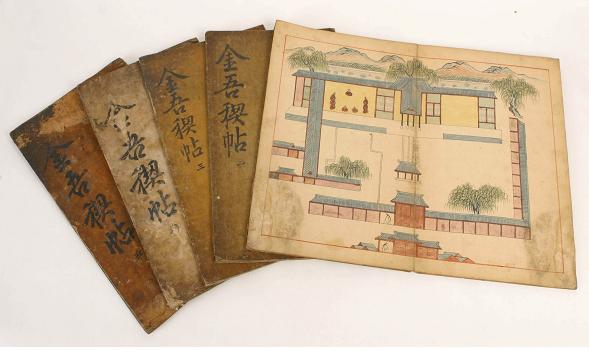 金吾稧帖
金吾稧帖
金吾稧帖 三
金吾稧帖 二